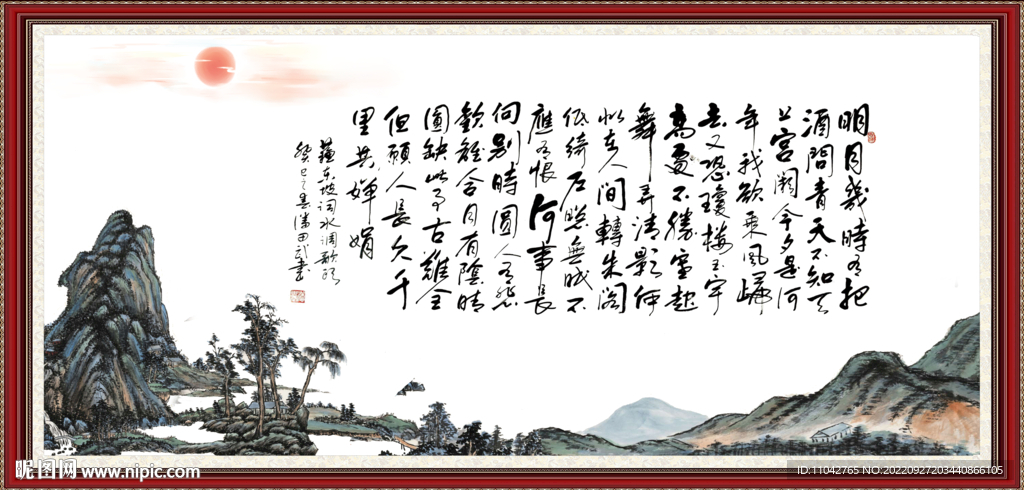 明月幾時有把
酒問青天不知天
上宮闕今夕是何
年我欲乘風歸
去又恐瓊樓玉宇
高處不勝寒起
舞弄清影何
似在人間轉朱閣
低綺户照無眠不
應有恨何事長
向别時圓人有悲
歡離合月有陰晴
圓缺此事古難全
但願人長久千
里共嬋娟
蘇東坡词水调歌头
癸巳之潘田武書
昵图网 www.nipic.com
ID:11042765 NO:20220927203440866105